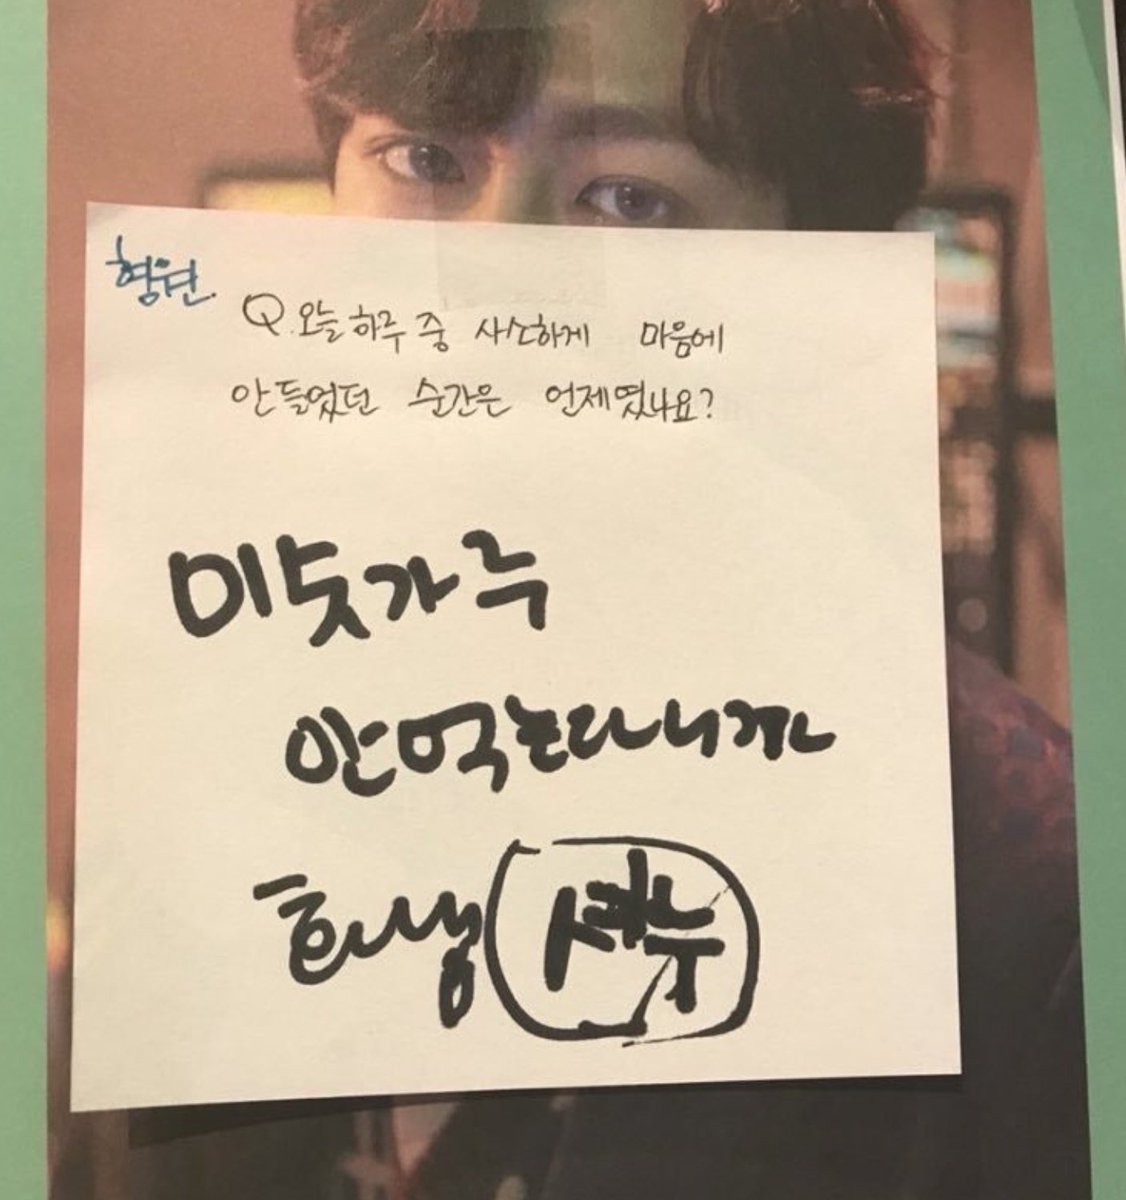 형원.
Q. 오늘 하루 중 사소하게 마음에
안 들었던 순간은 언제였나요?
미숫가루
안 먹는다니까
화냄
셔누